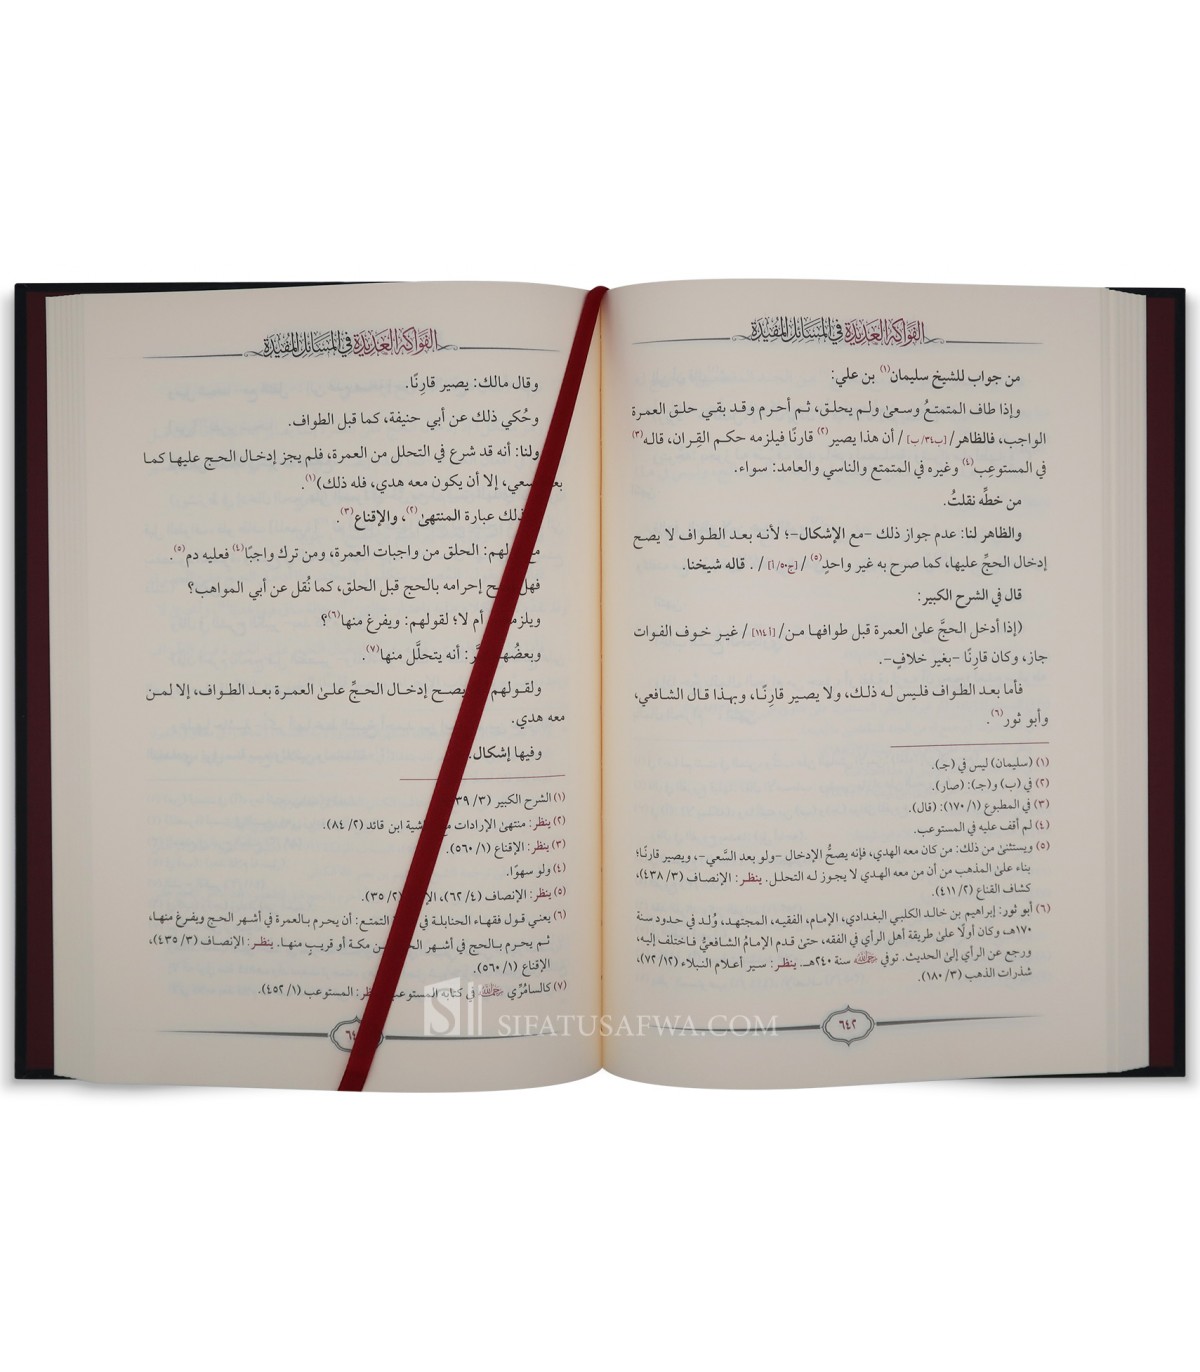 الفواكه العديدة في المسائل المفيدة
من جواب للشيخ سليمان(١) بن علي:
وإذا طاف المتمتعُ وسعىٰ ولم يحلق، ثم أحرم وقد بقي حلق العمرة
الواجب، فالظاهر/ [ب/٣٤ب] / أن هذا يصير(٢) قارنًا فيلزمه حكم القِران، قاله(٣)
في المستوعِب(٤) وغيره في المتمتع والناسي والعامد: سواء.
من خطِّه نقلتُ.
والظاهر لنا: عدم جواز ذلك -مع الإشكال-؛ لأنه بعد الطواف لا يصح
إدخال الحجِّ عليها، كما صرح به غير واحدٍ(٥) / [ج/٥٠أ] / . قاله شيخنا.
قال في الشرح الكبير:
(إذا أدخل الحجَّ علىٰ العمرة قبل طوافها من/ [١١٤أ] / غير خوف الفوات
جاز، وكان قارنًا -بغير خلافٍ-.
فأما بعد الطواف فليس له ذلك، ولا يصير قارنًا، وبهذا قال الشافعي،
وأبو ثور(٦).
(١) (سليمان) ليس في (جـ).
(٢) في (ب) و(جـ): (صار).
(٣) في المطبوع (١/ ١٧٠): (قال).
(٤) لم أقف عليه في المستوعب.
(٥) ويستثنىٰ من ذلك: من كان معه الهدي، فإنه يصحُّ الإدخال -ولو بعد السَّعي-، ويصير قارنًا؛
بناء علىٰ المذهب من أن من معه الهدي لا يجوز له التحلل. ينظر: الإنصاف (٣/ ٤٣٨)،
كشاف القناع (٢/ ٤١١).
(٦) أبو ثور: إبراهيم بن خالد الكلبي البغدادي، الإمام، الفقيه، المجتهد، وُلد في حدود سنة
١٧٠هـ، وكان أولًا علىٰ طريقة أهل الرأي في الفقه، حتىٰ قدم الإمامُ الشافعيُّ فاختلف إليه،
ورجع عن الرأي إلىٰ الحديث. توفي رحمه الله سنة ٢٤٠هـ. ينظر: سير أعلام النبلاء (١٢/ ٧٢)،
شذرات الذهب (٣/ ١٨٠).
٦٤٢
الفواكه العديدة في المسائل المفيدة
وقال مالك: يصير قارِنًا.
وحُكي ذلك عن أبي حنيفة، كما قبل الطواف.
ولنا: أنه قد شرع في التحلل من العمرة، فلم يجز إدخال الحج عليها كما
سعي، إلا أن يكون معه هدي، فله ذلك)(١).
ذلك عبارة المنتهىٰ(٢)، والإقناع(٣).
الحلق من واجبات العمرة، ومن ترك واجبًا(٤) فعليه دم(٥).
إحرامه بالحج قبل الحلق، كما نُقل عن أبي المواهب؟
أم لا؛ لقولهم: ويفرغ منها(٦)؟
أنه يتحلَّل منها(٧).
ولقولهم يصح إدخال الحجِّ علىٰ العمرة بعد الطواف، إلا لمن
معه هدي.
وفيها إشكال.
(١) الشرح الكبير (٣/
(٢) ينظر: منتهىٰ الإرادات ابن قائد (٢/ ٨٤).
(٣) ينظر: الإقناع (١/ ٥٦٠).
(٤) ولو سهوًا.
(٥) ينظر: الإنصاف (٤/ ٦٢)، (٢/ ٣٥).
(٦) يعني قول فقهاء الحنابلة في التمتع: أن يحرم بالعمرة في أشهر الحج ويفرغ منها،
ثم يحرم بالحج في أشهر مكة أو قريبٍ منها. ينظر: الإنصاف (٣/ ٤٣٥)،
الإقناع (١/ ٥٦٠).
(٧) كالسامُرِّي رحمه الله في كتابه المستوعب المستوعب (١/ ٤٥٢).
SIFATUSAFWA.COM